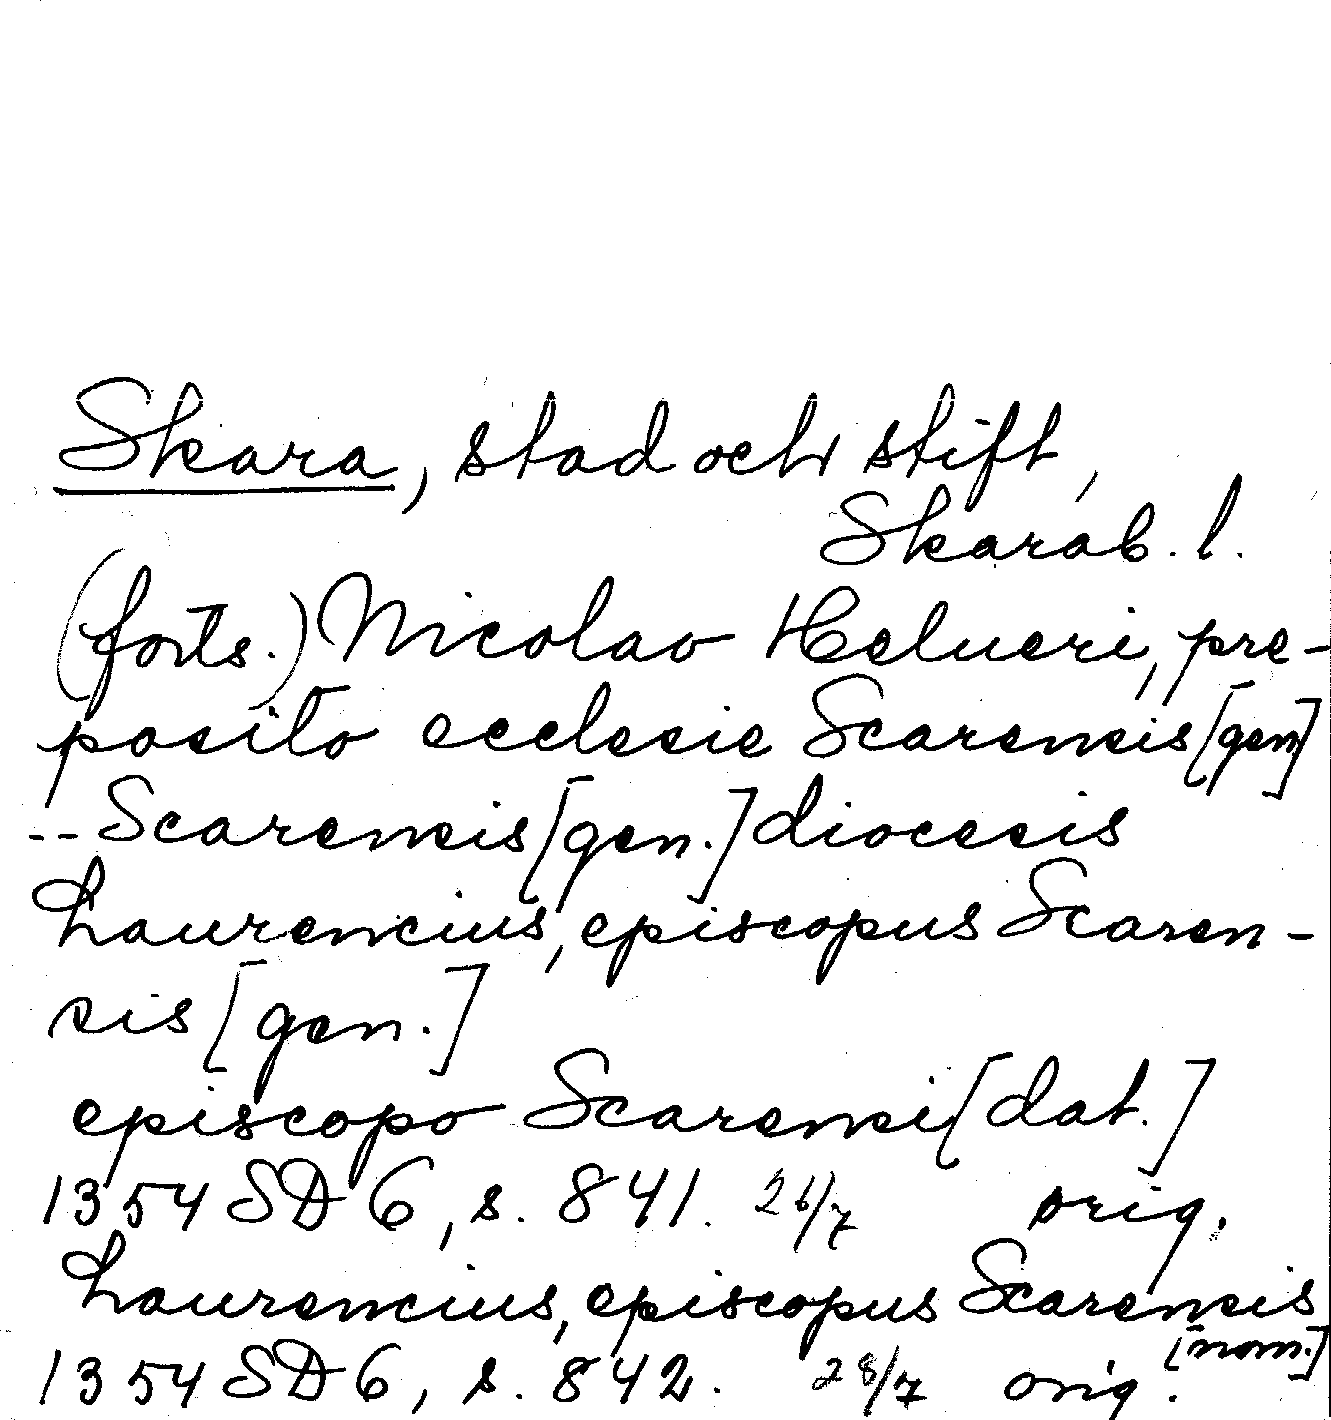 Skara, stad och stift,
Skarab. l.
(forts.) Nicolao Helueri, pre-
posito ecclesie Scarensis [gen]
-- Scarensis [gen.] diocesis
Laurencius, episcopus Scaren-
sis [gen.]
episcopo Scarensi [dat.]
1354 SD 6, s. 841. 26/7 orig.
Laurencius, episcopus Scarensis
[nom.]
1354 SD 6, s. 842. 28/7 orig.